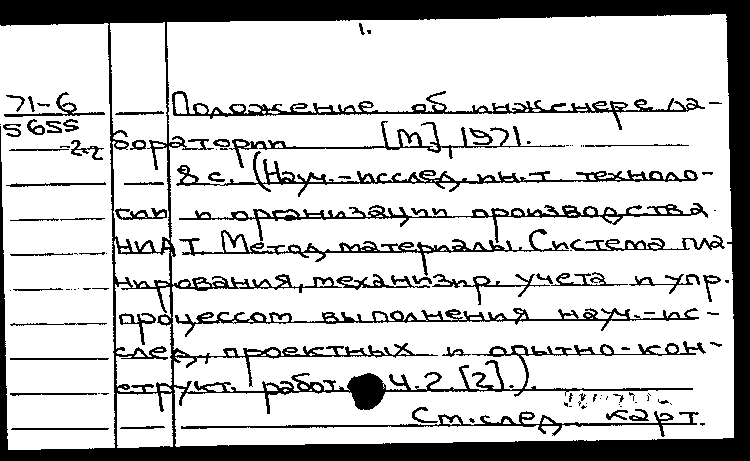 1.
71-6 Положение об инженере ла-
5655
-2.2 боратории. [М], 1971.
8 с. (Науч.-исслед. ин.-т техноло-
гии и организации производства
НИАТ. Метод. материалы. Система пла-
нирования, механизир. учета и упр.
процессом выполнения науч.-ис-
след., проектных и опытно-кон-
структ. работ. Ч.2 [2].).
См.след. карт.